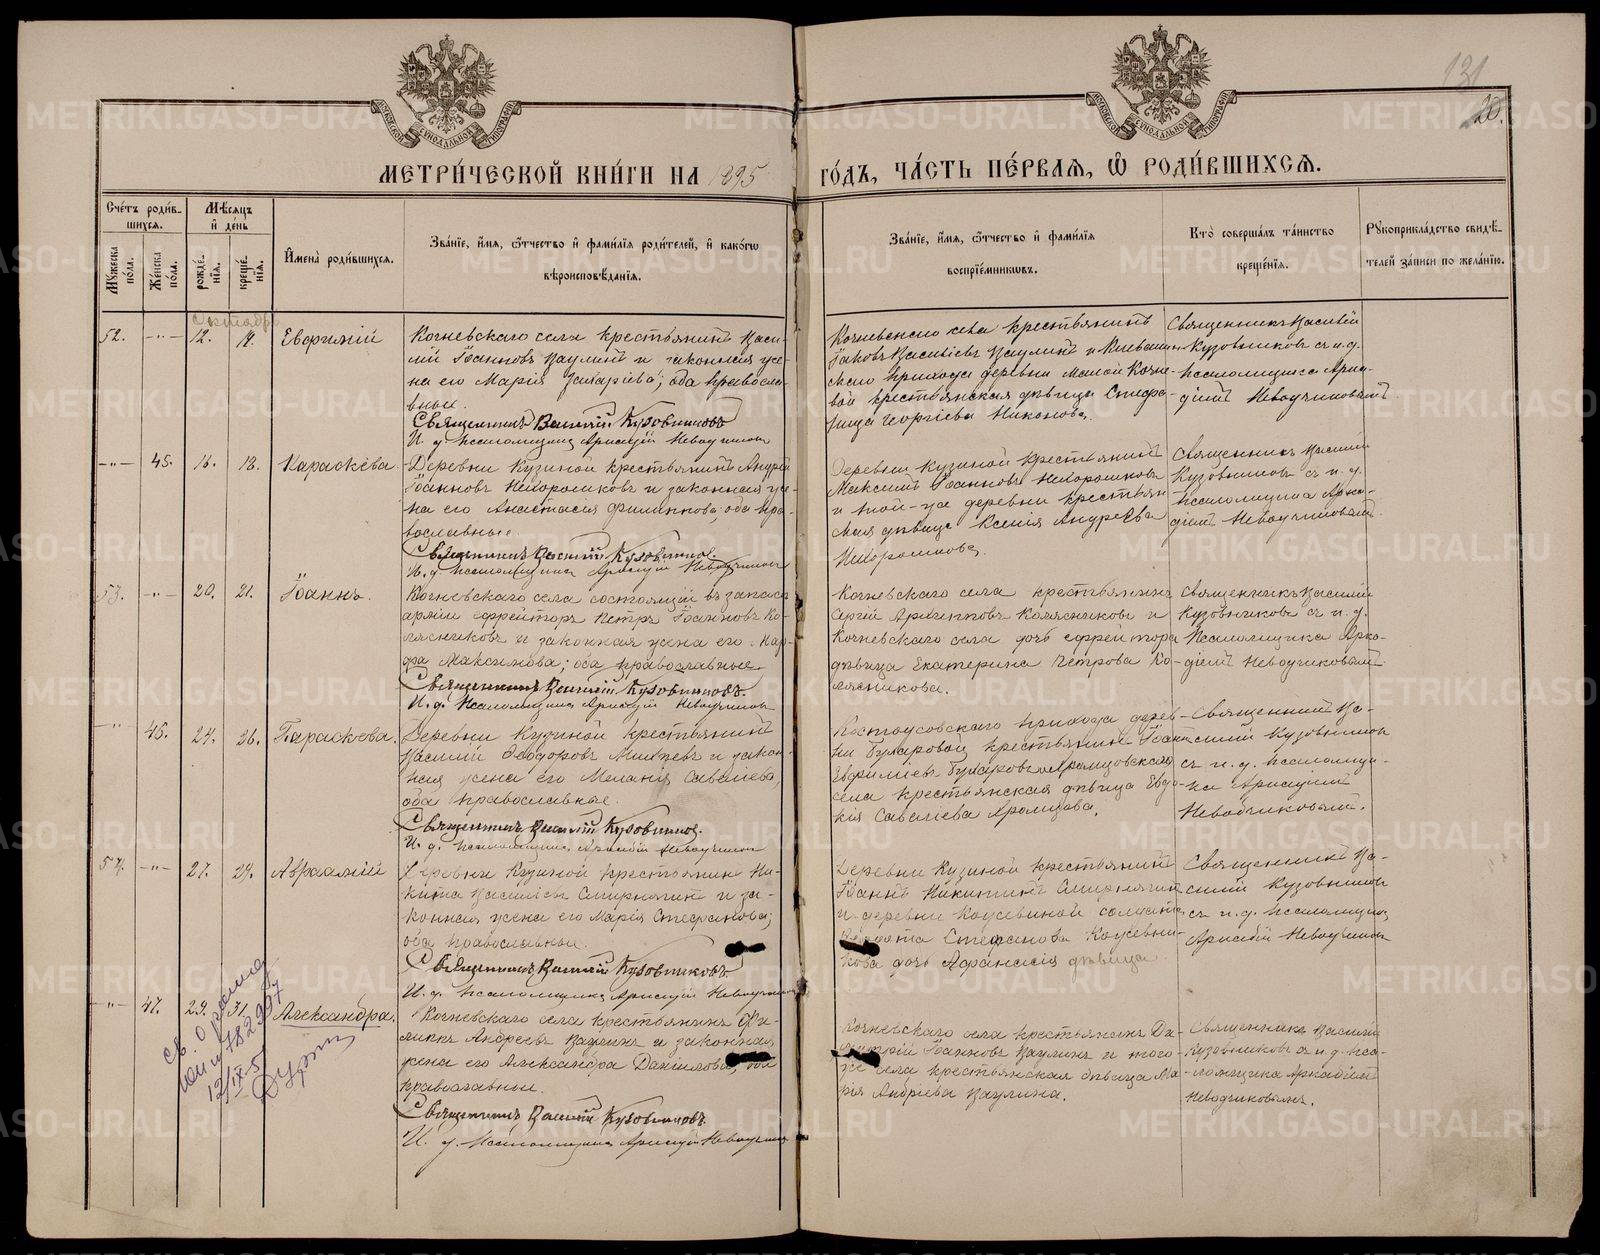 131
20.
МЕТРИ́ЧЕСКОЙ КНИ́ГИ НА 1895
ГО́ДЪ, ЧА́СТЬ ПЕ́РВАЯ, Ѿ РОДИ́ВШИХСЯ.
Сче́тъ роди́вшихся.
Мѣсяцъ и де́нь
Мужеска по́ла.
Же́нска по́ла.
рожде́нія.
креще́нія.
Имена̀ роди́вшихся.
Зва́ніе, и́мя, о́тчество и фами́лія роди́телей, и како́гѡ
вѣроисповѣ́данія.
Зва́ніе, и́мя, о́тчество и фами́лія
воспріе́мниковъ.
Кто̀ соверша́лъ та́инство
креще́нія.
Рукоприкла́дство свидѣ́-
телей за́писи по жела́нію.
Октябрь
52. -"- 12. Евфимій
Кочневскаго села крестьянинъ Васи-
лій Іоанновъ Ваулинъ и законная же-
на его Марія Захаріева; оба православ-
ные.
Священникъ Василій Кузовниковъ
И. д. псаломщика Аркадій Неводчиковъ
Кочневскаго села крестьянинъ
Іаковъ Васильевъ Ваулинъ и
скаго прихода деревни Малой Кочне-
вой крестьянская дѣвица Стефа-
нида Георгіева Никонова.
Священникъ Василій
Кузовниковъ съ и. д.
псаломщика Арка-
діемъ Неводчиковымъ
-"- 45. 16. 18. Параскева.
Деревни Кузиной крестьянинъ Андрей
Іоанновъ Нехорошковъ и законная же-
на его Анастасія Филиппова; оба пра-
вославные.
Священникъ Василій Кузовников.
И. д. псаломщика Аркадій Неводчиков
Деревни Кузиной крестьянинъ
Максимъ Іоанновъ Нехорошковъ
и той-же деревни крестьян-
ская дѣвица Ксенія Андреева
Нехорошкова.
Священникъ Василій
Кузовников съ и. д.
псаломщика Арка-
діемъ Неводчиковымъ.
53. -"- 20. 21. Іоаннъ.
Кочневскаго села состоящій въ запасѣ
арміи ефрейторъ Петръ Іоанновъ Ко-
лясниковъ и законная жена его Мар-
фа Максимова; оба православные.
Священникъ Василій Кузовниковъ.
И. д. Псаломщика Аркадій Неводчиков
Кочневскаго села крестьянинъ
Сергій Архипповъ Колясниковъ и
Кочневскаго села дочь ефрейтора
дѣвица Екатерина Петрова Ко-
лясникова.
Священникъ Василій
Кузовниковъ съ и. д.
Псаломщика Арка-
діемъ Неводчиковымъ
-"- 46. 24. 26. Параскева.
Деревни Кузиной крестьянинъ
Василій Ѳеодоровъ и закон-
ная жена его Меланія Савкіева,
оба православные.
Священникъ Василій Кузовников.
И. д. псаломщика Аркадій Неводчиков
прихода дерев-
ни Бухаровой крестьянинъ Іоаннъ
Евфиміевъ Бухаровъ и
села крестьянская дѣвица Евдо-
кія Савкіева
Священникъ Ва-
силій Кузовников
съ и. д. псаломщи-
ка Аркадіемъ
Неводчиковымъ.
54. -"- 27. 29. Авраамій
Деревни Кузиной крестьянинъ Ни-
кита Васильевъ Смирнягинъ и за-
конная жена его Марія Стефанова;
оба православные.
Священникъ Василій Кузовниковъ
И. д. псаломщика Аркадій Неводчиков
Деревни Кузиной крестьянинъ
Іоаннъ Никитинъ Смирнягинъ
и деревни солдата
Стефанова
дочь Афанасія дѣвица
Священникъ Ва-
силій Кузовников
съ и. д. псаломщика
Аркадій Неводчиков
-"- 47. 29. 31. Александра.
Кочневскаго села крестьянинъ Фи-
липпъ Андреевъ Ваулинъ и законная
жена его Александра Даніилова; оба
православные.
Священникъ Василій Кузовниковъ.
И. д. Псаломщика Аркадій Неводчиков
Кочневскаго села крестьянинъ Ди-
митрій Іоанновъ Ваулинъ и того-
же села крестьянская дѣвица Ма-
рія Андреева Ваулина.
Священникъ Василій
Кузовниковъ съ и. д. пса-
ломщика Аркадіемъ
Неводчиковымъ.
METRIKI.GASO-URAL.RU